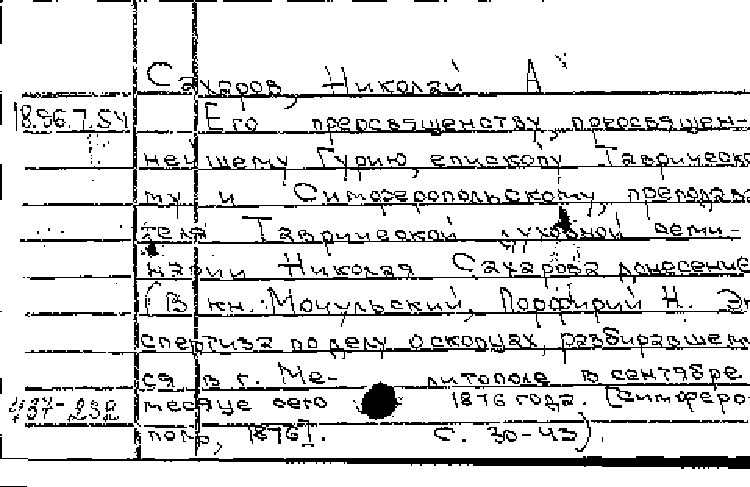 Сахаров, Николай А
18.96.7.54 Его преосвященству, преосвящен-
нейшему Гурию, епископу Таврическо
му и Симферопольскому, преподава
теля Таврической духовной семи-
нарии Николая Сахарова донесение
(В кн.: Мочульский, Порфирий Н. Эк
спертиза по делу о скопцах, разбиравшем
ся в г. Ме- литополе в сентябре
437-232 месяце сего 1876 года. [Симферо-
поль, 1876]. С. 30-43).